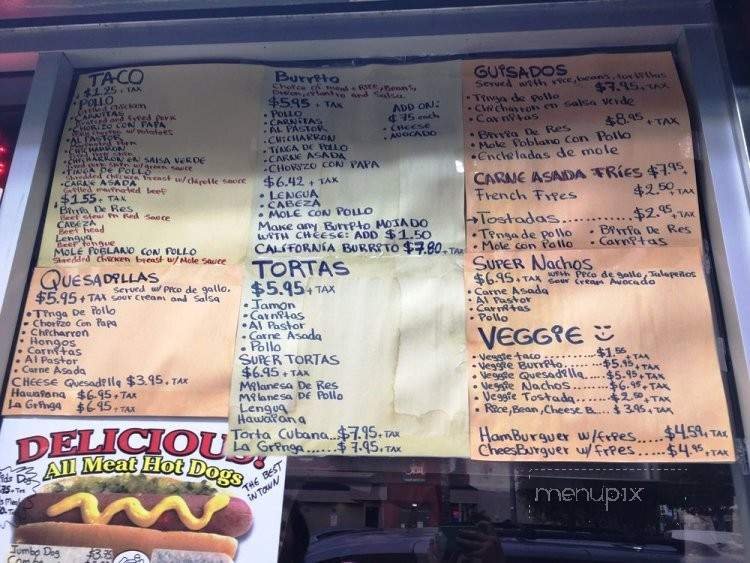 TACO
$1.25 + TAX
POLLO
Grilled chicken
CARNITAS
and fried pork
CHORIZO CON PAPA
w/ potatoes
AL PASTOR
CHICHARRON EN SALSA VERDE
TINGA DE POLLO
Shredded chicken breast w/chipotle sauce
CARNE ASADA
Grilled marinated beef
$1.55 + TAX
Birria De Res
Beef stew in Red sauce
CABEZA
Beef head
Lengua
Beef tongue
MOLE POBLANO CON POLLO
Shredded chicken breast w/Mole sauce
Burrito
Choice of meat + Rice, Beans,
Onion, cilantro and Salsa.
$5.95 + TAX
• POLLO
• CARNITAS
• AL PASTOR
• CHICHARRON
• TINGA DE POLLO
• CARNE ASADA
• CHORIZO CON PAPA
ADD ON:
¢75 each
• CHEESE
• AVOCADO
$6.42 + TAX
• LENGUA
• CABEZA
• MOLE CON POLLO
Make any Burrito MOJADO
WITH CHEESE: ADD $1.50
CALIFORNIA BURRITO $7.80 + TAX
GUISADOS
Served with rice, beans, tortillas
$7.95 + TAX
• Tinga de pollo
• Chicharron en salsa verde
• Carnitas
$8.95 + TAX
• Birria De Res
• Mole Poblano con Pollo
• Enchiladas de mole
CARNE ASADA FRIES $7.95 +
French Fries $2.50 + TAX
Tostadas............ $2.95 + TAX
• Tinga de pollo • Birria De Res
• Mole con Pollo • Carnitas
QUESADILLAS
$5.95 + TAX served w/ Pico de gallo,
sour cream and Salsa
• Tinga De Pollo
• Chorizo Con Papa
• Chicharron
• Hongos
• Carnitas
• Al Pastor
• Carne Asada
CHEESE Quesadilla $3.95 + TAX
Hawaiana $6.95 + TAX
La Gringa $6.95 + TAX
TORTAS
$5.95 + TAX
• Jamon
• Carnitas
• Al Pastor
• Carne Asada
• Pollo
SUPER TORTAS
$6.95 + TAX
Milanesa De Res
Milanesa De Pollo
Lengua
Hawaiana
Torta Cubana...$7.95 + TAX
La Gringa......$7.95 + TAX
SUPER Nachos
$6.95 + TAX with Pico de gallo, Jalapeños
sour cream Avocado
• Carne Asada
• Al Pastor
• Carnitas
• Pollo
VEGGIE
• Veggie taco..........$1.55 + TAX
• Veggie Burrito.......$5.95 + TAX
• Veggie Quesadilla...$5.95 + TAX
• Veggie Nachos......$6.95 + TAX
• Veggie Tostada.....$2.50 + TAX
• Rice, Bean, Cheese B... $3.95 + TAX
HamBurguer w/fries.....$4.59 + TAX
CheesBurguer w/fries....$4.95 + TAX
DELICIOUS!
All Meat Hot Dogs
THE BEST
IN TOWN
Jumbo Dog $3.75
Combo
menupix